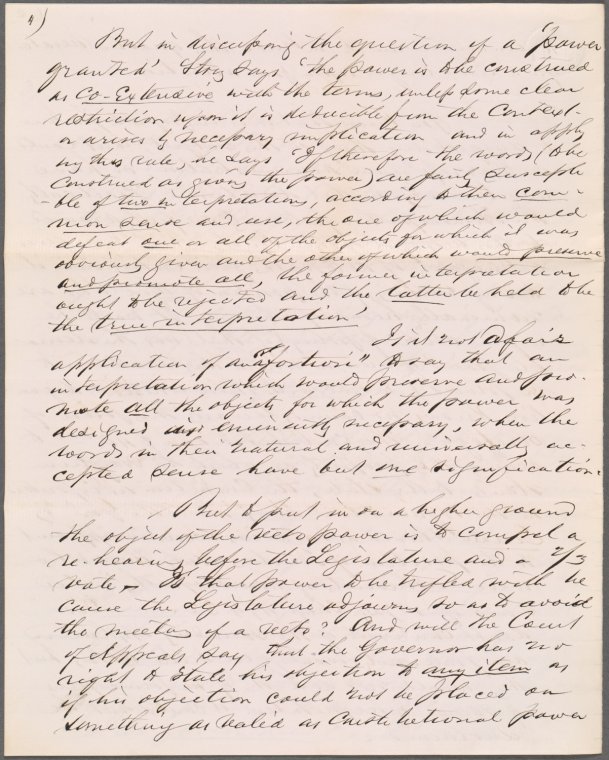 4)
But in discussing the question of a 'power
granted' Story says 'the power is to be construed
as Co-Extensive with the terms, unless some clear
restriction upon it is deducible from the Context-
or arises by necessary implication and in apply
ing this rule, he says 'If therefore the words (to be
Construed as giving the power) are fairly suscepti
-ble of two interpretations, according to their com-
mon sense and use, the one of which would
defeat one or all of the objects for which it was
obviously given and the other of which would preserve
and promote all, the former interpretation
ought to be rejected and the latter be held to be
the true interpretation'
Is it not a fair
application of an a fortiori" to say that an
interpretation which would preserve and pro-
mote all the objects for which the power was
designed is eminently necessary, when the
words in their natural and universally ac-
cepted sense have but one signification.
But to put in on a higher ground
the object of the veto power is to compel a
re-hearing before the Legislature and a 2/3
vote. Is that power to be trifled with be
cause the Legislature adjourns so as to avoid
the meeting of a veto? And will the Court
of Appeals say that the Governor has no
right to State his objection to any item as
if his objection could not be placed on
something as valid as Constitutional power